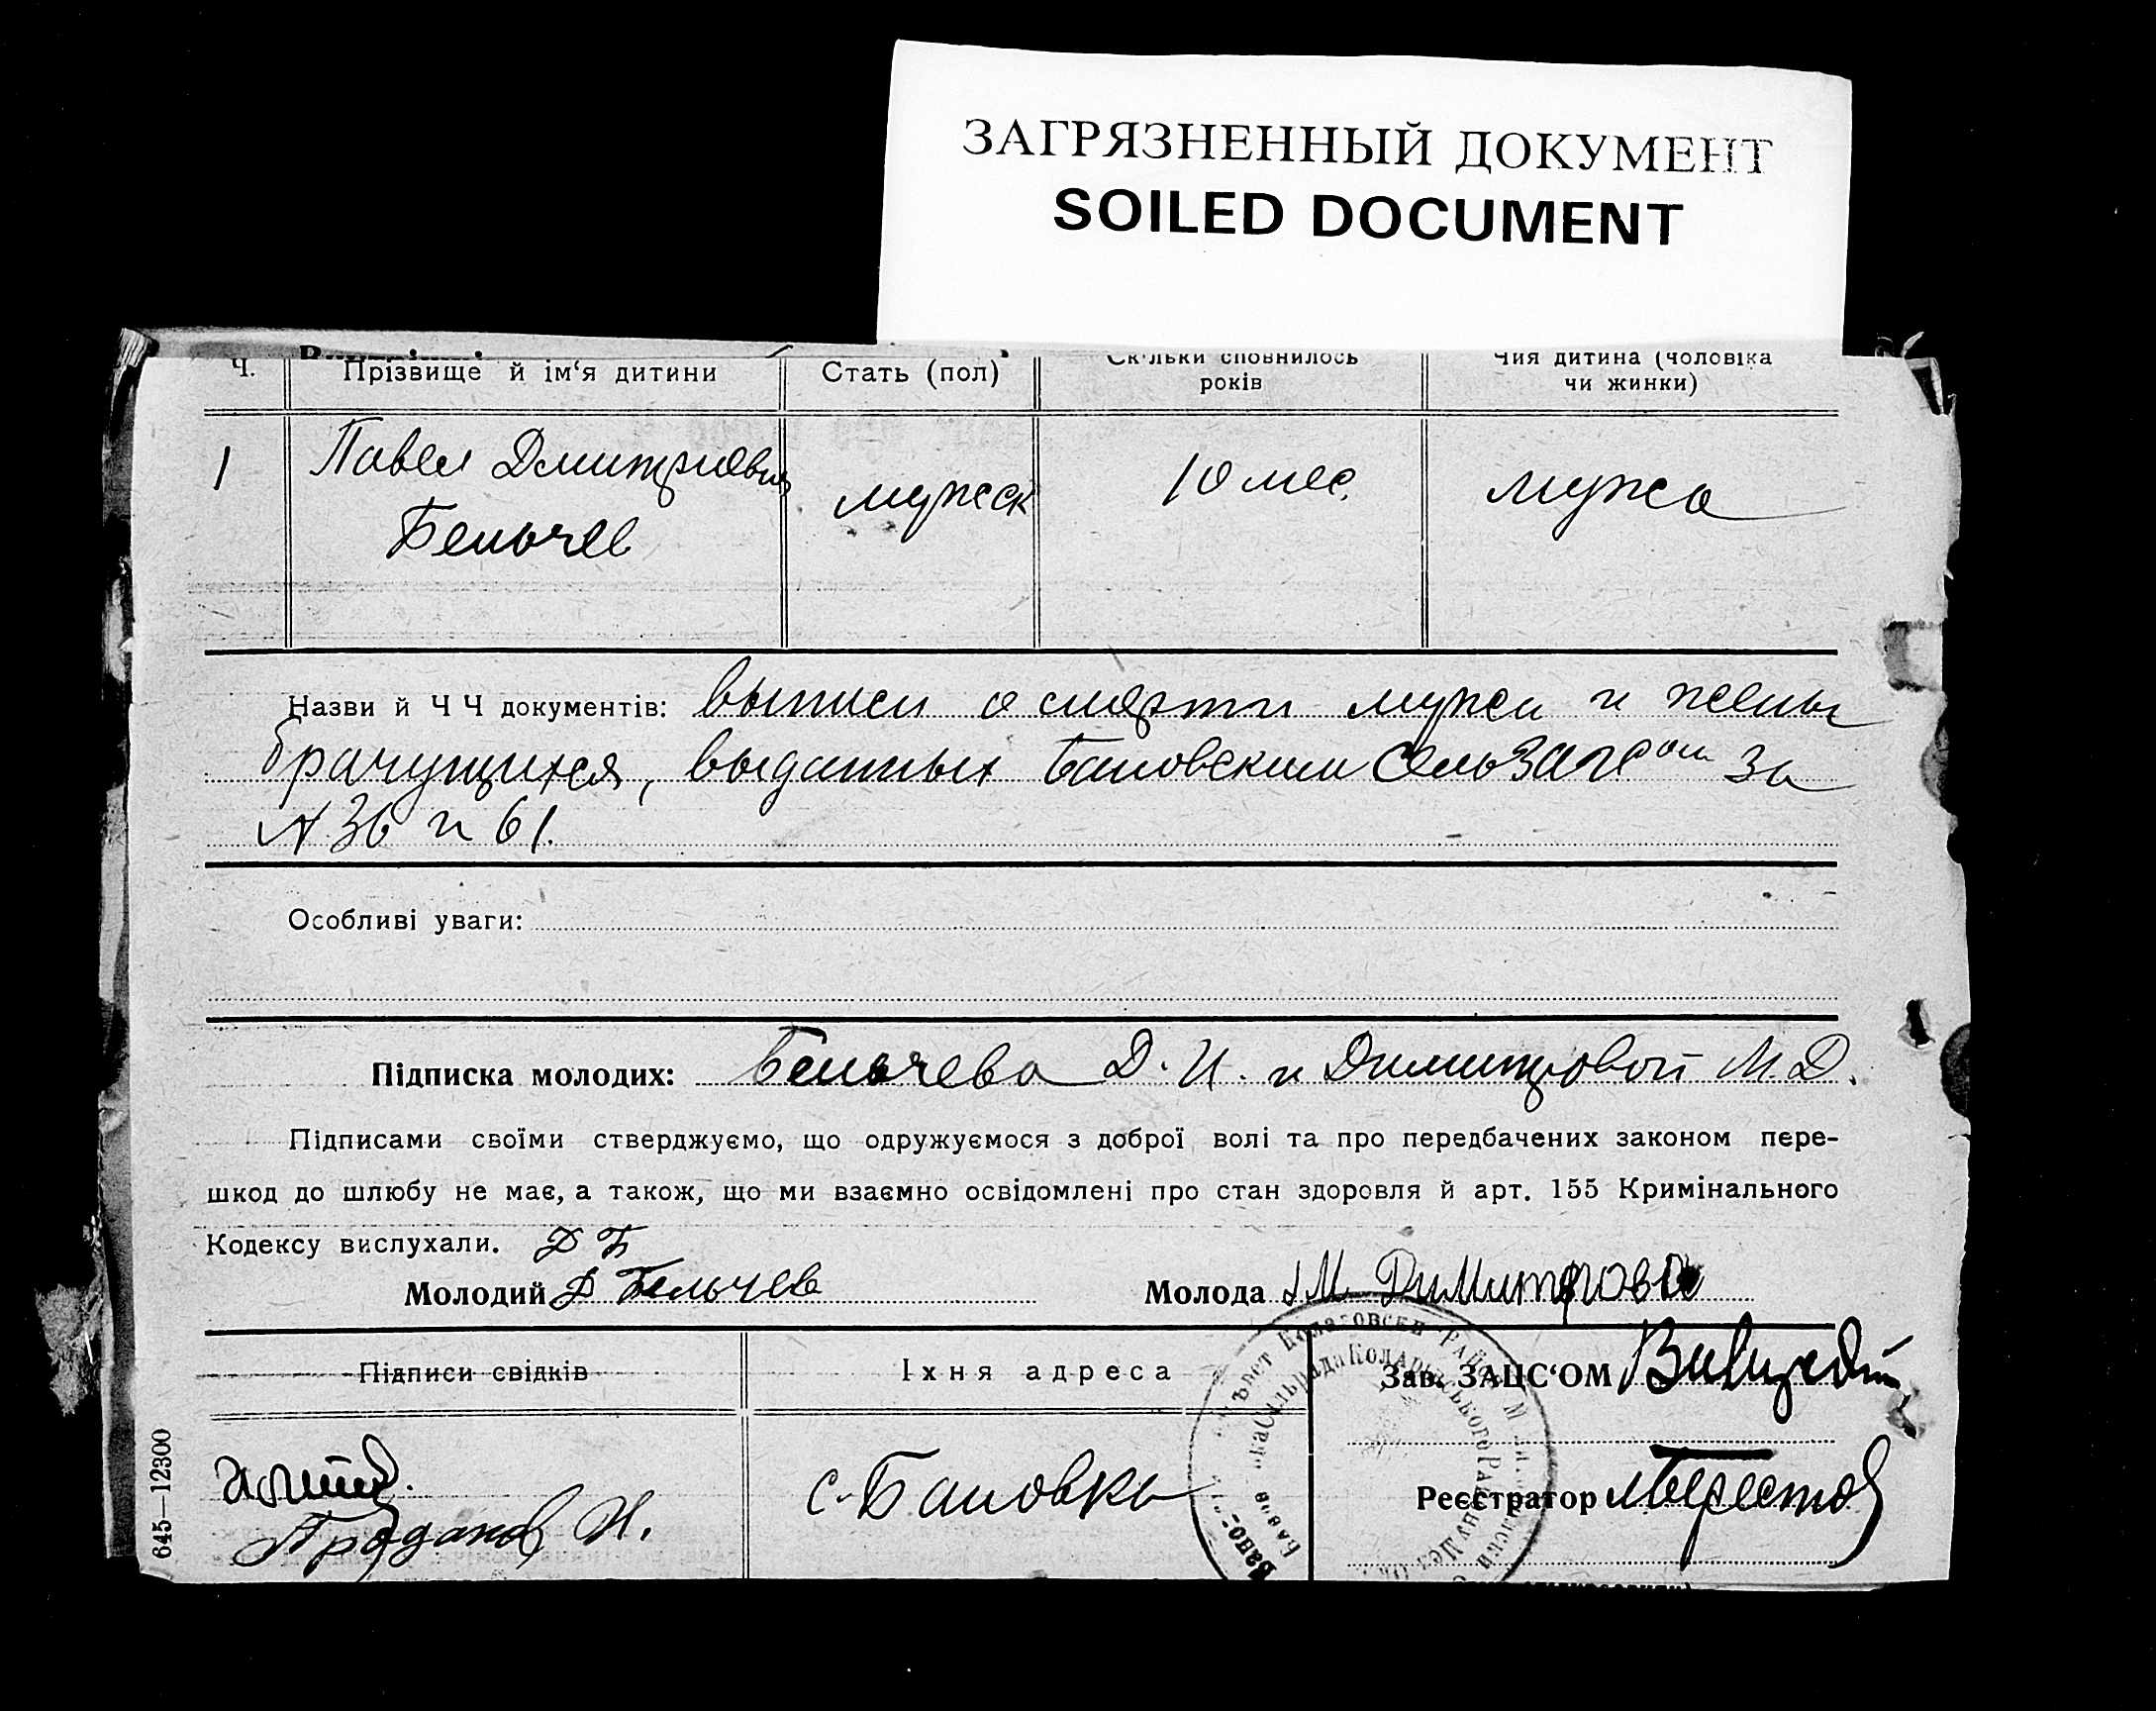 ЗАГРЯЗНЕННЫЙ ДОКУМЕНТ
SOILED DOCUMENT
Ч.
Прізвище й ім‘я дитини
Стать (пол)
Скільки сповнилось
років
Чия дитина (чоловіка
чи жинки)
1
Павел Дмитриевич
Бельчев
мужск
10 мес.
мужа
Назви й Ч Ч документів: выписи о смерти мужа и жены
брачущихся, выданных Бановским СельЗагсом за
N 36 и 61.
Особливі уваги:
Підписка молодих: Бельчева Д. И. и Димитровой М. Д.
Підписами своїми стверджуємо, що одружуємося з доброї волі та про передбачених законом пере-
шкод до шлюбу не має, а також, що ми взаємно освідомлені про стан здоровля й арт. 155 Кримінального
Кодексу вислухали. Д Б
Молодий Д Бельчев
Молода М Димитрова
Підписи свідків
Їхня адреса
Зав. ЗАЦС‘ОМ
Проданов И.
с. Бановка
Реєстратор
645—12300